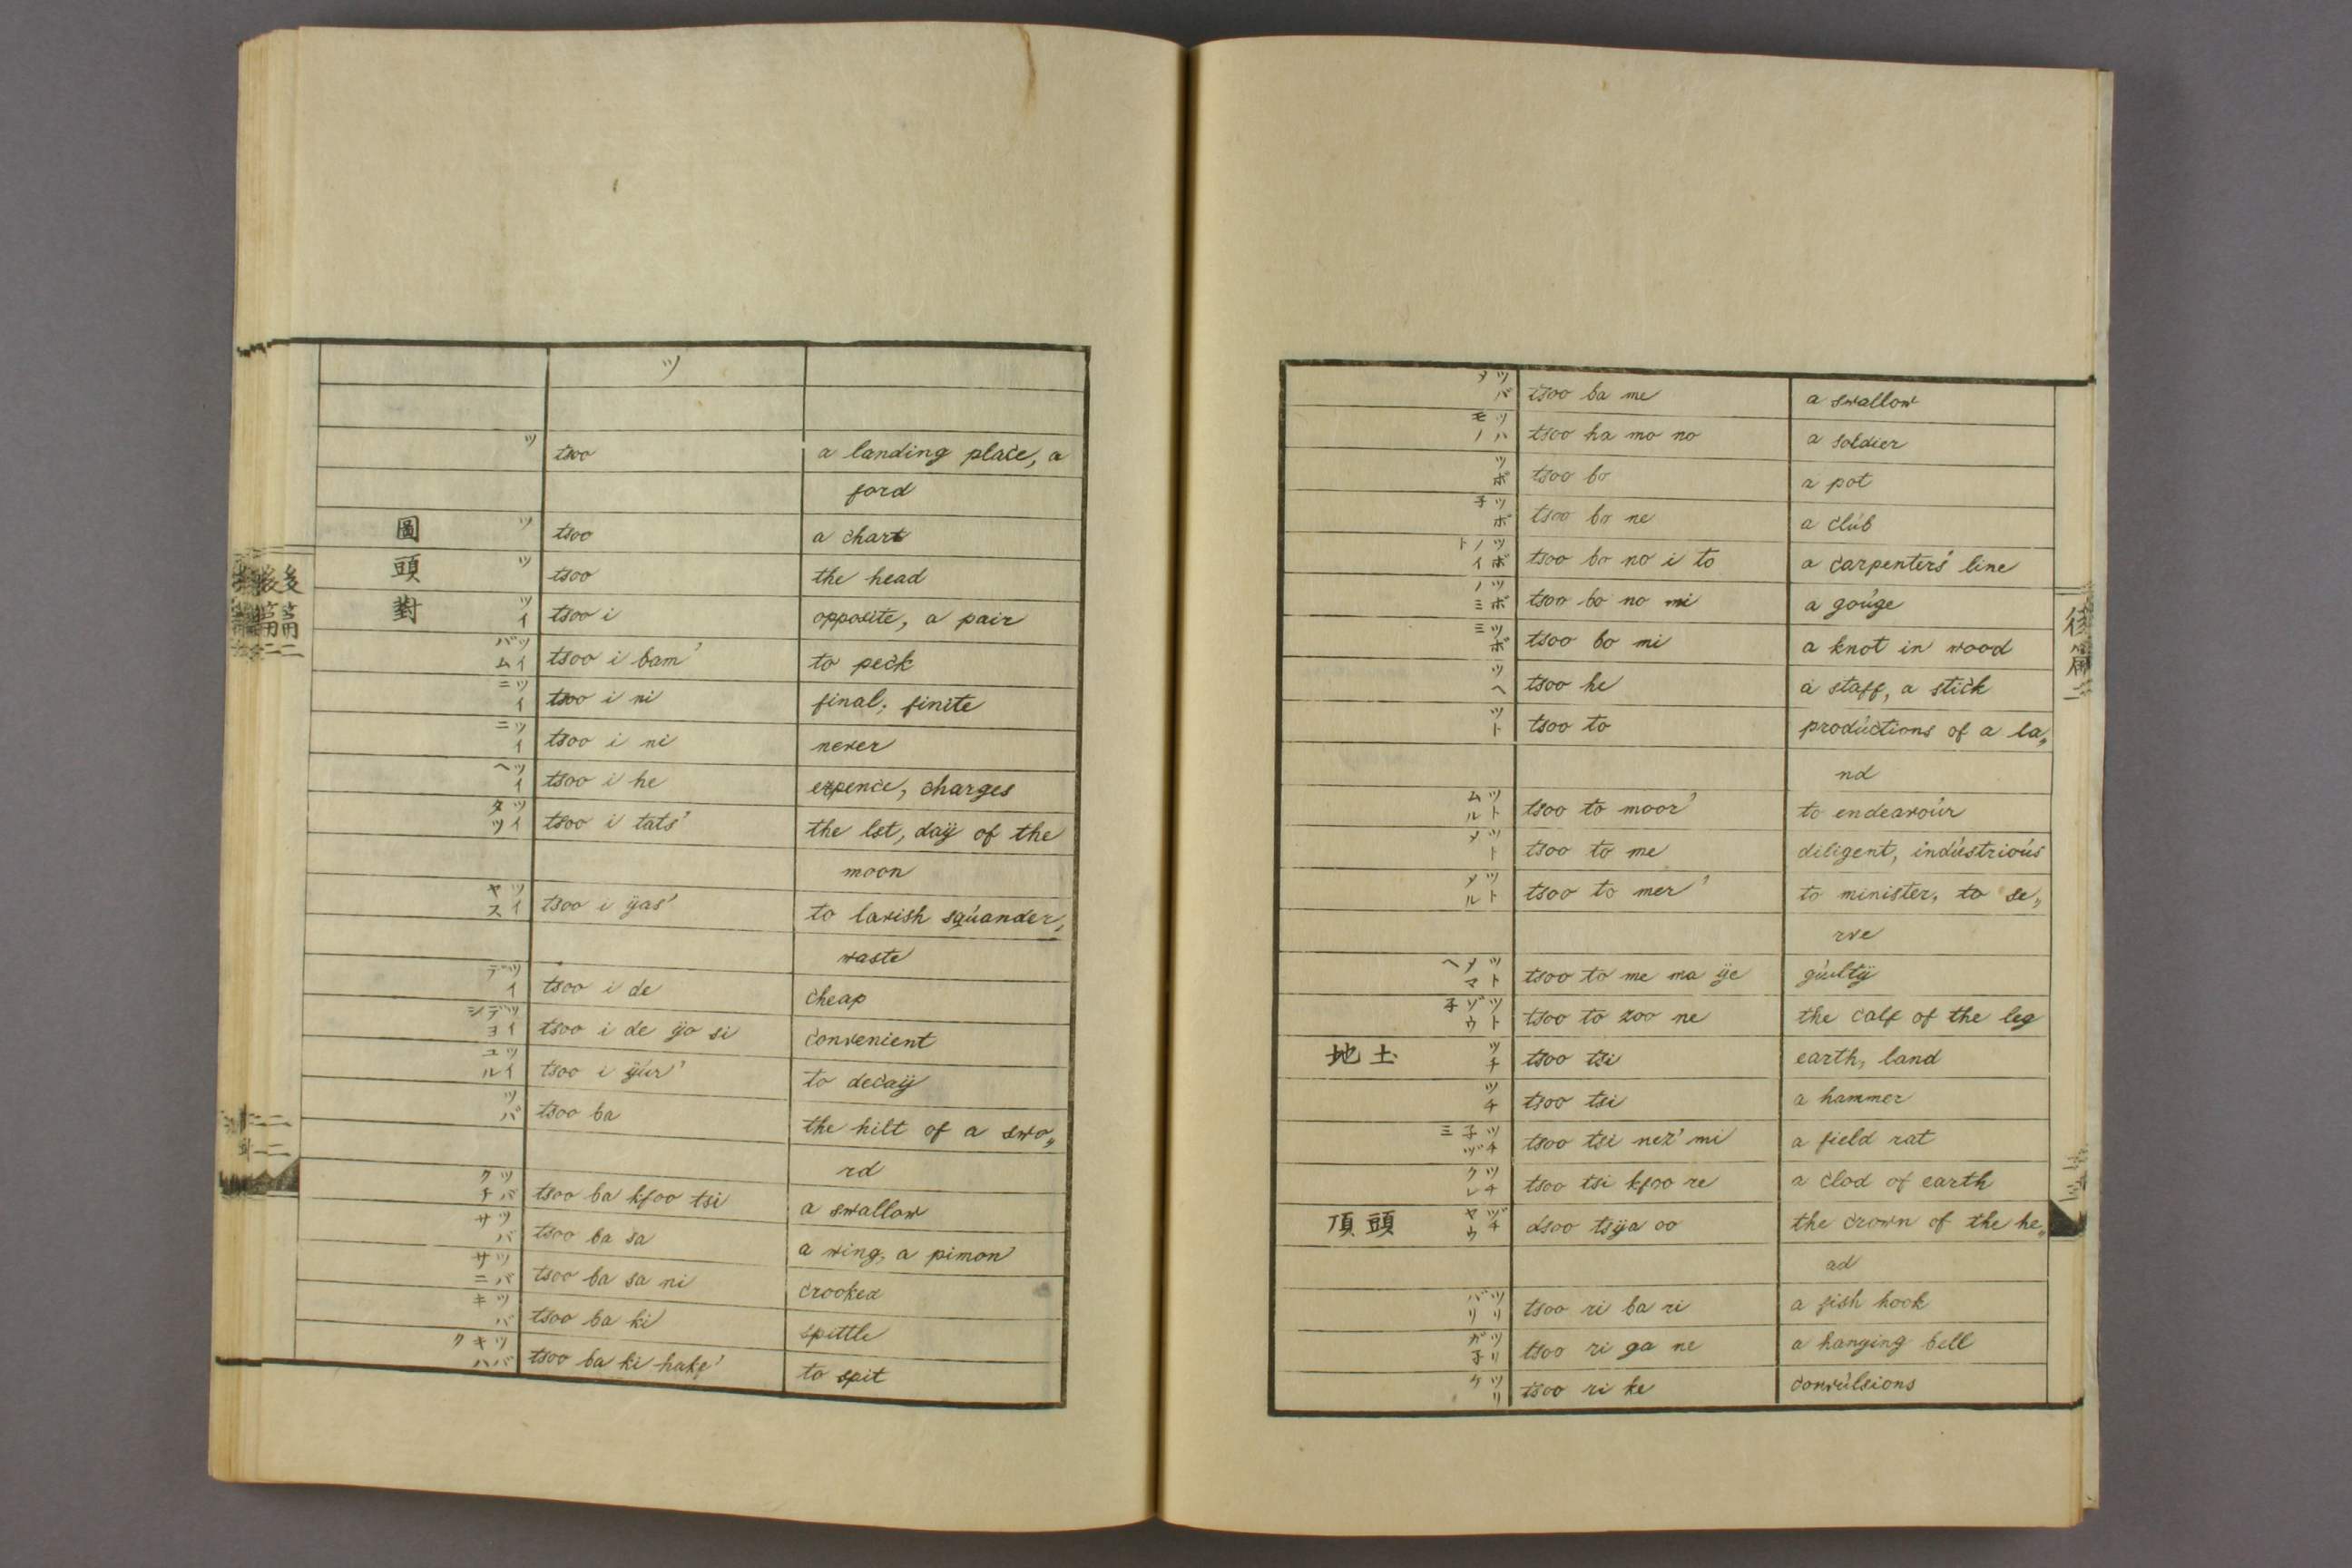 ツ
ツ tsoo a landing place, a
ford
圖 ツ tsoo a chart
頭 ツ tsoo the head
對 ツイ tsoo i opposite, a pair
ツイバム tsoo i bam' to peck
ツイニ tsoo i ni final; finite
ツイニ tsoo i ni never
ツイヘ tsoo i he expence, charges
ツイタツ tsoo i tats' the 1st, daÿ of the
moon
ツイヤス tsoo i ÿas' to lavish squander,
waste
ツイデ tsoo i de cheap
ツイデヨシ tsoo i de ÿo si convenient
ツイユル tsoo i ÿur' to decaÿ
ツバ tsoo ba the hilt of a swo„
rd
ツバクチ tsoo ba kfoo tsi a swallow
ツバサ tsoo ba sa a wing, a pimon
ツバサニ tsoo ba sa ni crooked
ツバキ tsoo ba ki spittle
ツバキハク tsoo ba ki hakf' to spit
後篇
ツバメ tsoo ba me a swallow
ツハモノ tsoo ha mo no a soldier
ツボ tsoo bo a pot
ツボ子 tsoo bo ne a club
ツボノイト tsoo bo no i to a carpenters' line
ツボノミ tsoo bo no mi a gouge
ツボミ tsoo bo mi a knot in wood
ツヘ tsoo he a staff, a stick
ツト tsoo to productions of a la„
nd
ツトムル tsoo to moor' to endeavour
ツトメ tsoo to me diligent, industrious
ツトメル tsoo to mer' to minister, to se„
rve
ツトメマヘ tsoo to me ma ÿe guiltÿ
ツトゾウ子 tsoo to zoo ne the calf of the leg
土地 ツチ tsoo tsi earth, land
ツチ tsoo tsi a hammer
ツチ子ヅミ tsoo tsi nez' mi a field rat
ツチクレ tsoo tsi kfoo re a clod of earth
頭頂 ヅチヤウ dsoo tsÿa oo the crown of the he„
ad
ツリバリ tsoo ri ba ri a fish hook
ツリガ子 tsoo ri ga ne a hanging bell
ツリケ tsoo ri ke convulsions
後篇